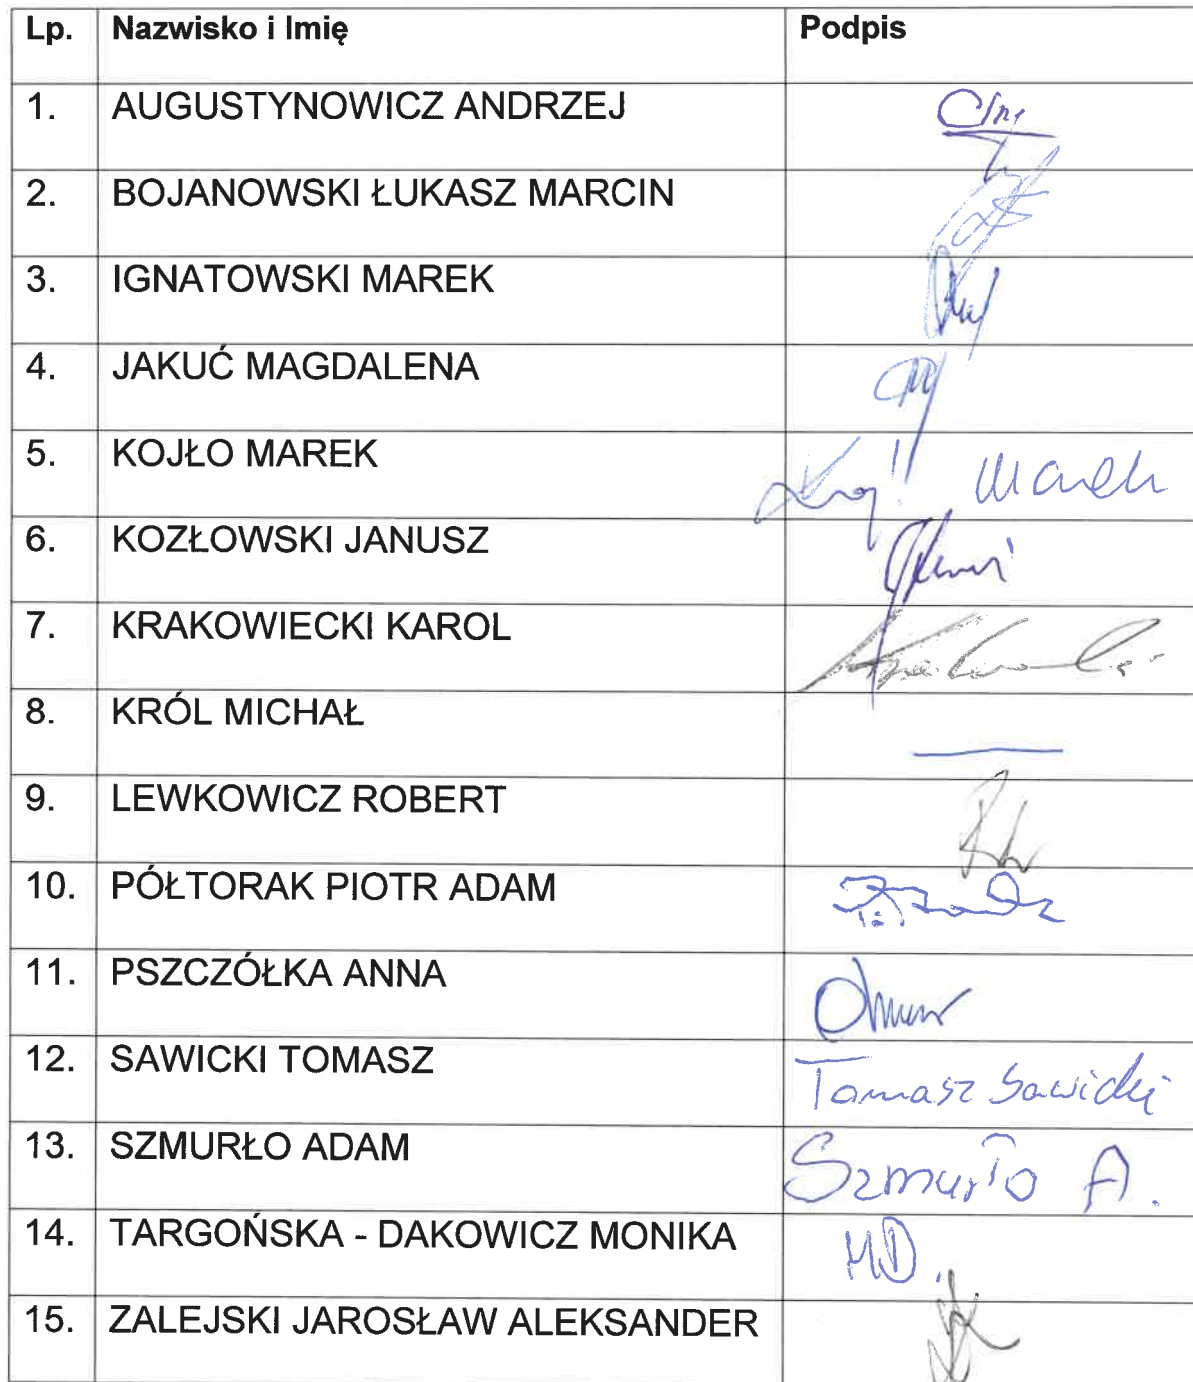 Lp. Nazwisko i Imię Podpis
1. AUGUSTYNOWICZ ANDRZEJ
2. BOJANOWSKI ŁUKASZ MARCIN
3. IGNATOWSKI MAREK
4. JAKUĆ MAGDALENA
5. KOJŁO MAREK Marek
6. KOZŁOWSKI JANUSZ
7. KRAKOWIECKI KAROL
8. KRÓL MICHAŁ
9. LEWKOWICZ ROBERT
10. PÓŁTORAK PIOTR ADAM
11. PSZCZÓŁKA ANNA
12. SAWICKI TOMASZ Tomasz Sawicki
13. SZMURŁO ADAM Szmurło A.
14. TARGOŃSKA - DAKOWICZ MONIKA MD.
15. ZALEJSKI JAROSŁAW ALEKSANDER